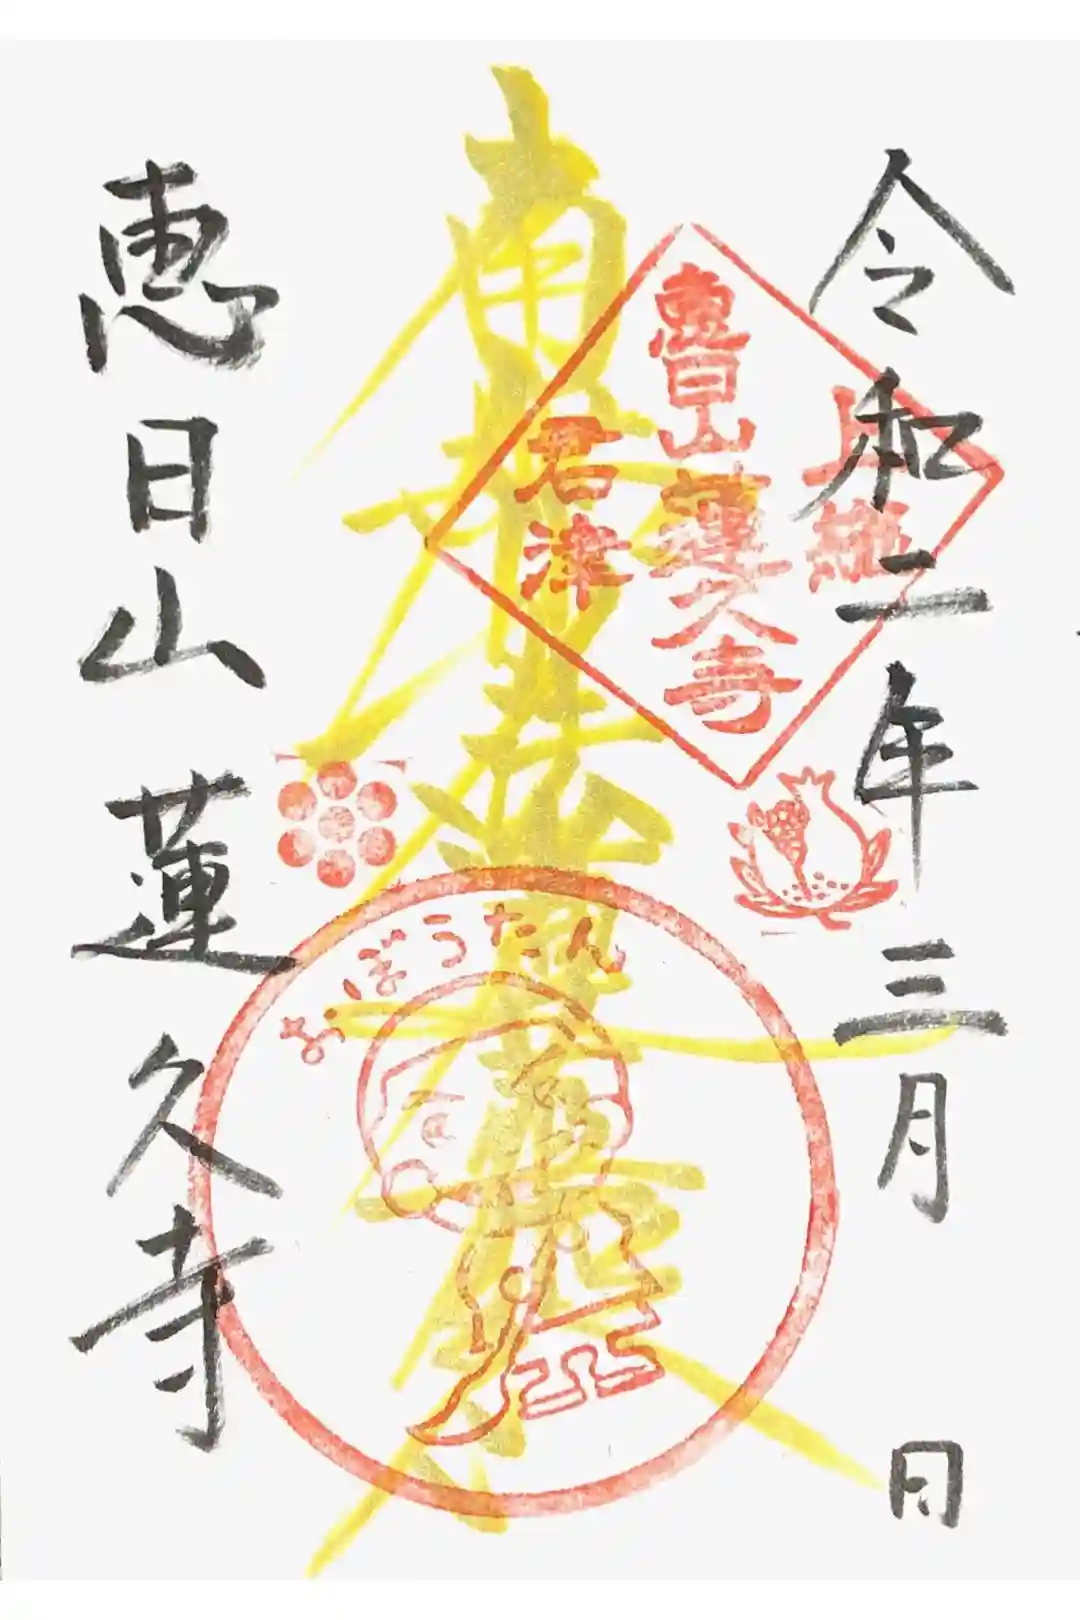 令和二年三月 日
南無妙法蓮華経
上総
惠日山蓮久寺
君津
おぼうたん
恵日山 蓮久寺